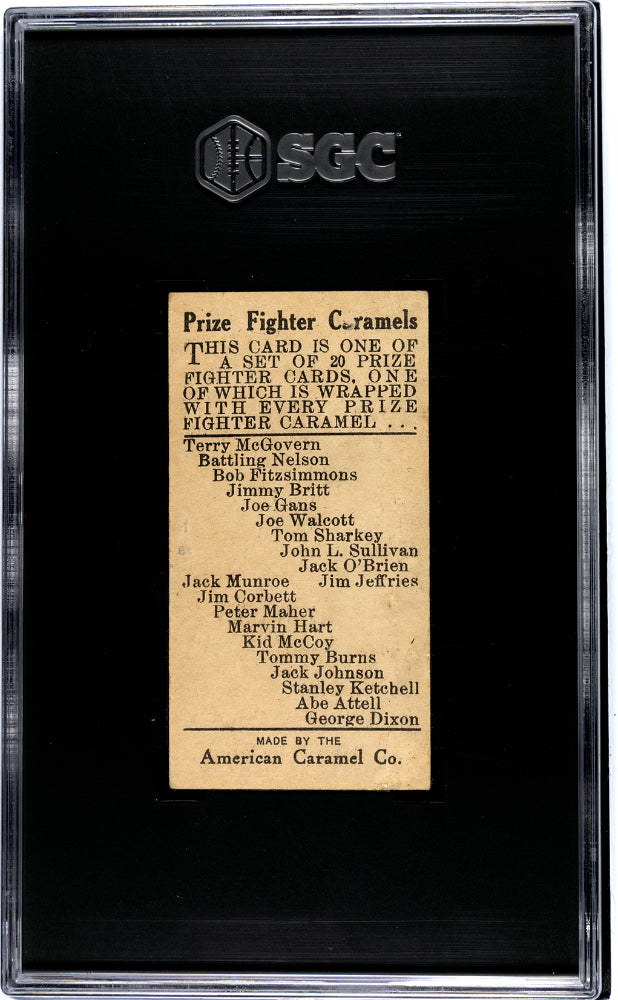 SGC
Prize Fighter Caramels
THIS CARD IS ONE OF
A SET OF 20 PRIZE
FIGHTER CARDS, ONE
OF WHICH IS WRAPPED
WITH EVERY PRIZE
FIGHTER CARAMEL ...
Terry McGovern
Battling Nelson
Bob Fitzsimmons
Jimmy Britt
Joe Gans
Joe Walcott
Tom Sharkey
John L. Sullivan
Jack O'Brien
Jack Munroe Jim Jeffries
Jim Corbett
Peter Maher
Marvin Hart
Kid McCoy
Tommy Burns
Jack Johnson
Stanley Ketchell
Abe Attell
George Dixon
MADE BY THE
American Caramel Co.